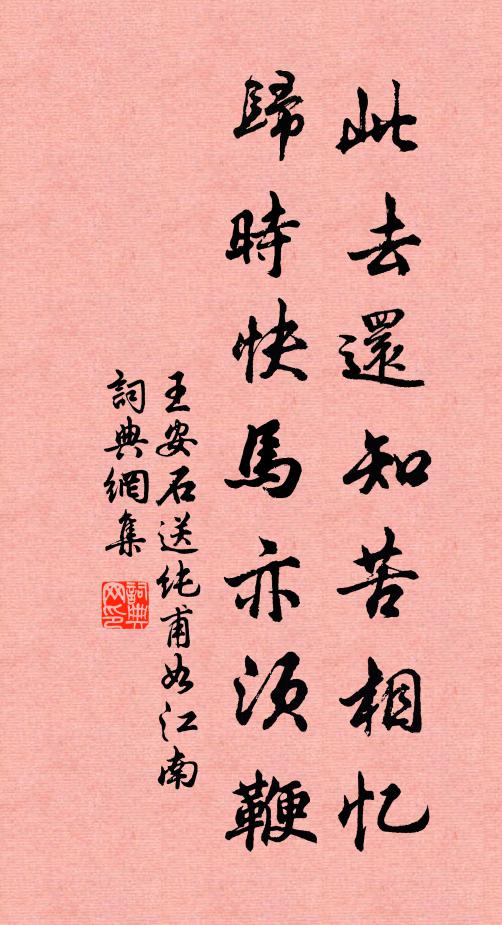 此去還知苦相忆
歸時快馬亦須鞭
王安石送純甫如江南
詞典網集
詞典网印